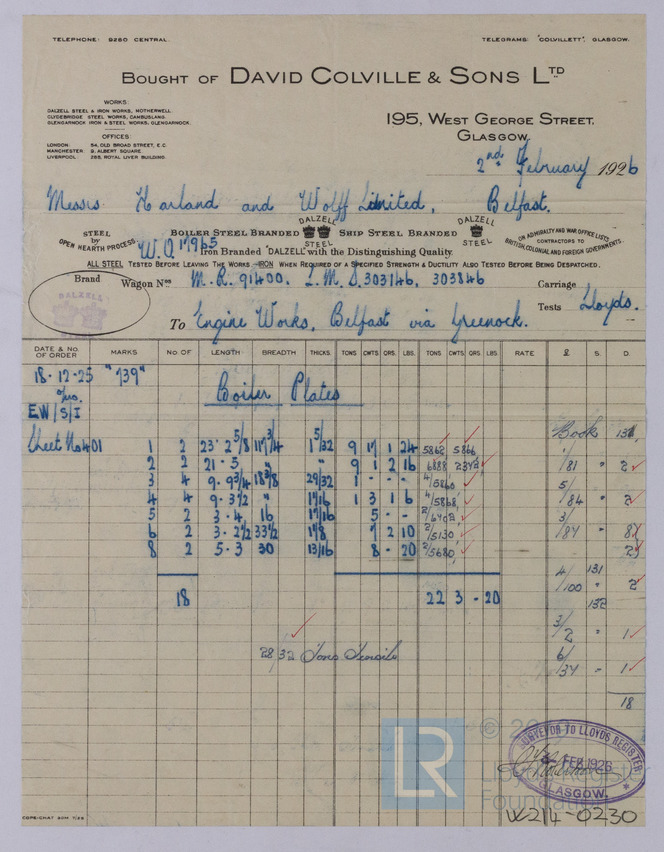 TELEPHONE: 9260 CENTRAL.
TELEGRAMS: "COLVILLETT", GLASGOW.
BOUGHT OF DAVID COLVILLE & SONS LTD
WORKS:
DALZELL STEEL & IRON WORKS, MOTHERWELL.
CLYDEBRIDGE STEEL WORKS, CAMBUSLANG.
GLENGARNOCK IRON & STEEL WORKS, GLENGARNOCK.
OFFICES:
LONDON: 54, OLD BROAD STREET, E.C.
MANCHESTER: 9, ALBERT SQUARE.
LIVERPOOL: 285, ROYAL LIVER BUILDING.
195, WEST GEORGE STREET,
GLASGOW,
2nd February 1926
Messrs Harland and Wolff Limited, Belfast.
STEEL by OPEN HEARTH PROCESS
BOILER STEEL BRANDED DALZELL STEEL SHIP STEEL BRANDED DALZELL STEEL
ON ADMIRALTY AND WAR OFFICE LISTS, CONTRACTORS TO BRITISH, COLONIAL AND FOREIGN GOVERNMENTS.
W.O 17965
Iron Branded "DALZELL" with the Distinguishing Quality.
ALL STEEL TESTED BEFORE LEAVING THE WORKS—IRON WHEN REQUIRED OF A SPECIFIED STRENGTH & DUCTILITY ALSO TESTED BEFORE BEING DESPATCHED.
Brand
DALZELL
Wagon Nos M.R. 91400. L.M.S. 303146. 303846
Carriage
Tests Lloyds.
To Engine Works, Belfast via Greenock.
DATE & No. OF ORDER MARKS No. OF LENGTH BREADTH THICKS. TONS CWTS QRS. LBS. TONS CWTS QRS LBS RATE £ S. D.
18-12-25 "739"
EW/S/I
Boiler Plates
Book
Sheet No 401
1 2 23·2 5/8 117 3/4 1 5/32 9 17 1 24 5862 5866
2 2 21-5 " " 9 1 2 16 6888
1/81 " 2
3 4 9-9 3/4 18 3/8 29/32 1 - - - 4/5860
4 4 9-3 1/2 " 1 1/16 1 3 1 6 4/5868
5/84 " 2
5 2 3-4 16 1 1/16 5 - -
6 2 3-2 1/2 33 1/2 1 1/8 7 2 10 2/5130
3/87 "
8 2 5-3 30 13/16 8 - 20 2/5680
4/100 131 " 2
132
18 22 3 - 20
3/2 " 1
28/32 Tons Tensile
6/37 " 1
18
© 20
LR
Lloyd's Register
Foundation
SURVEYOR TO LLOYDS REGISTER
FEB 1926
GLASGOW.
W214-0230